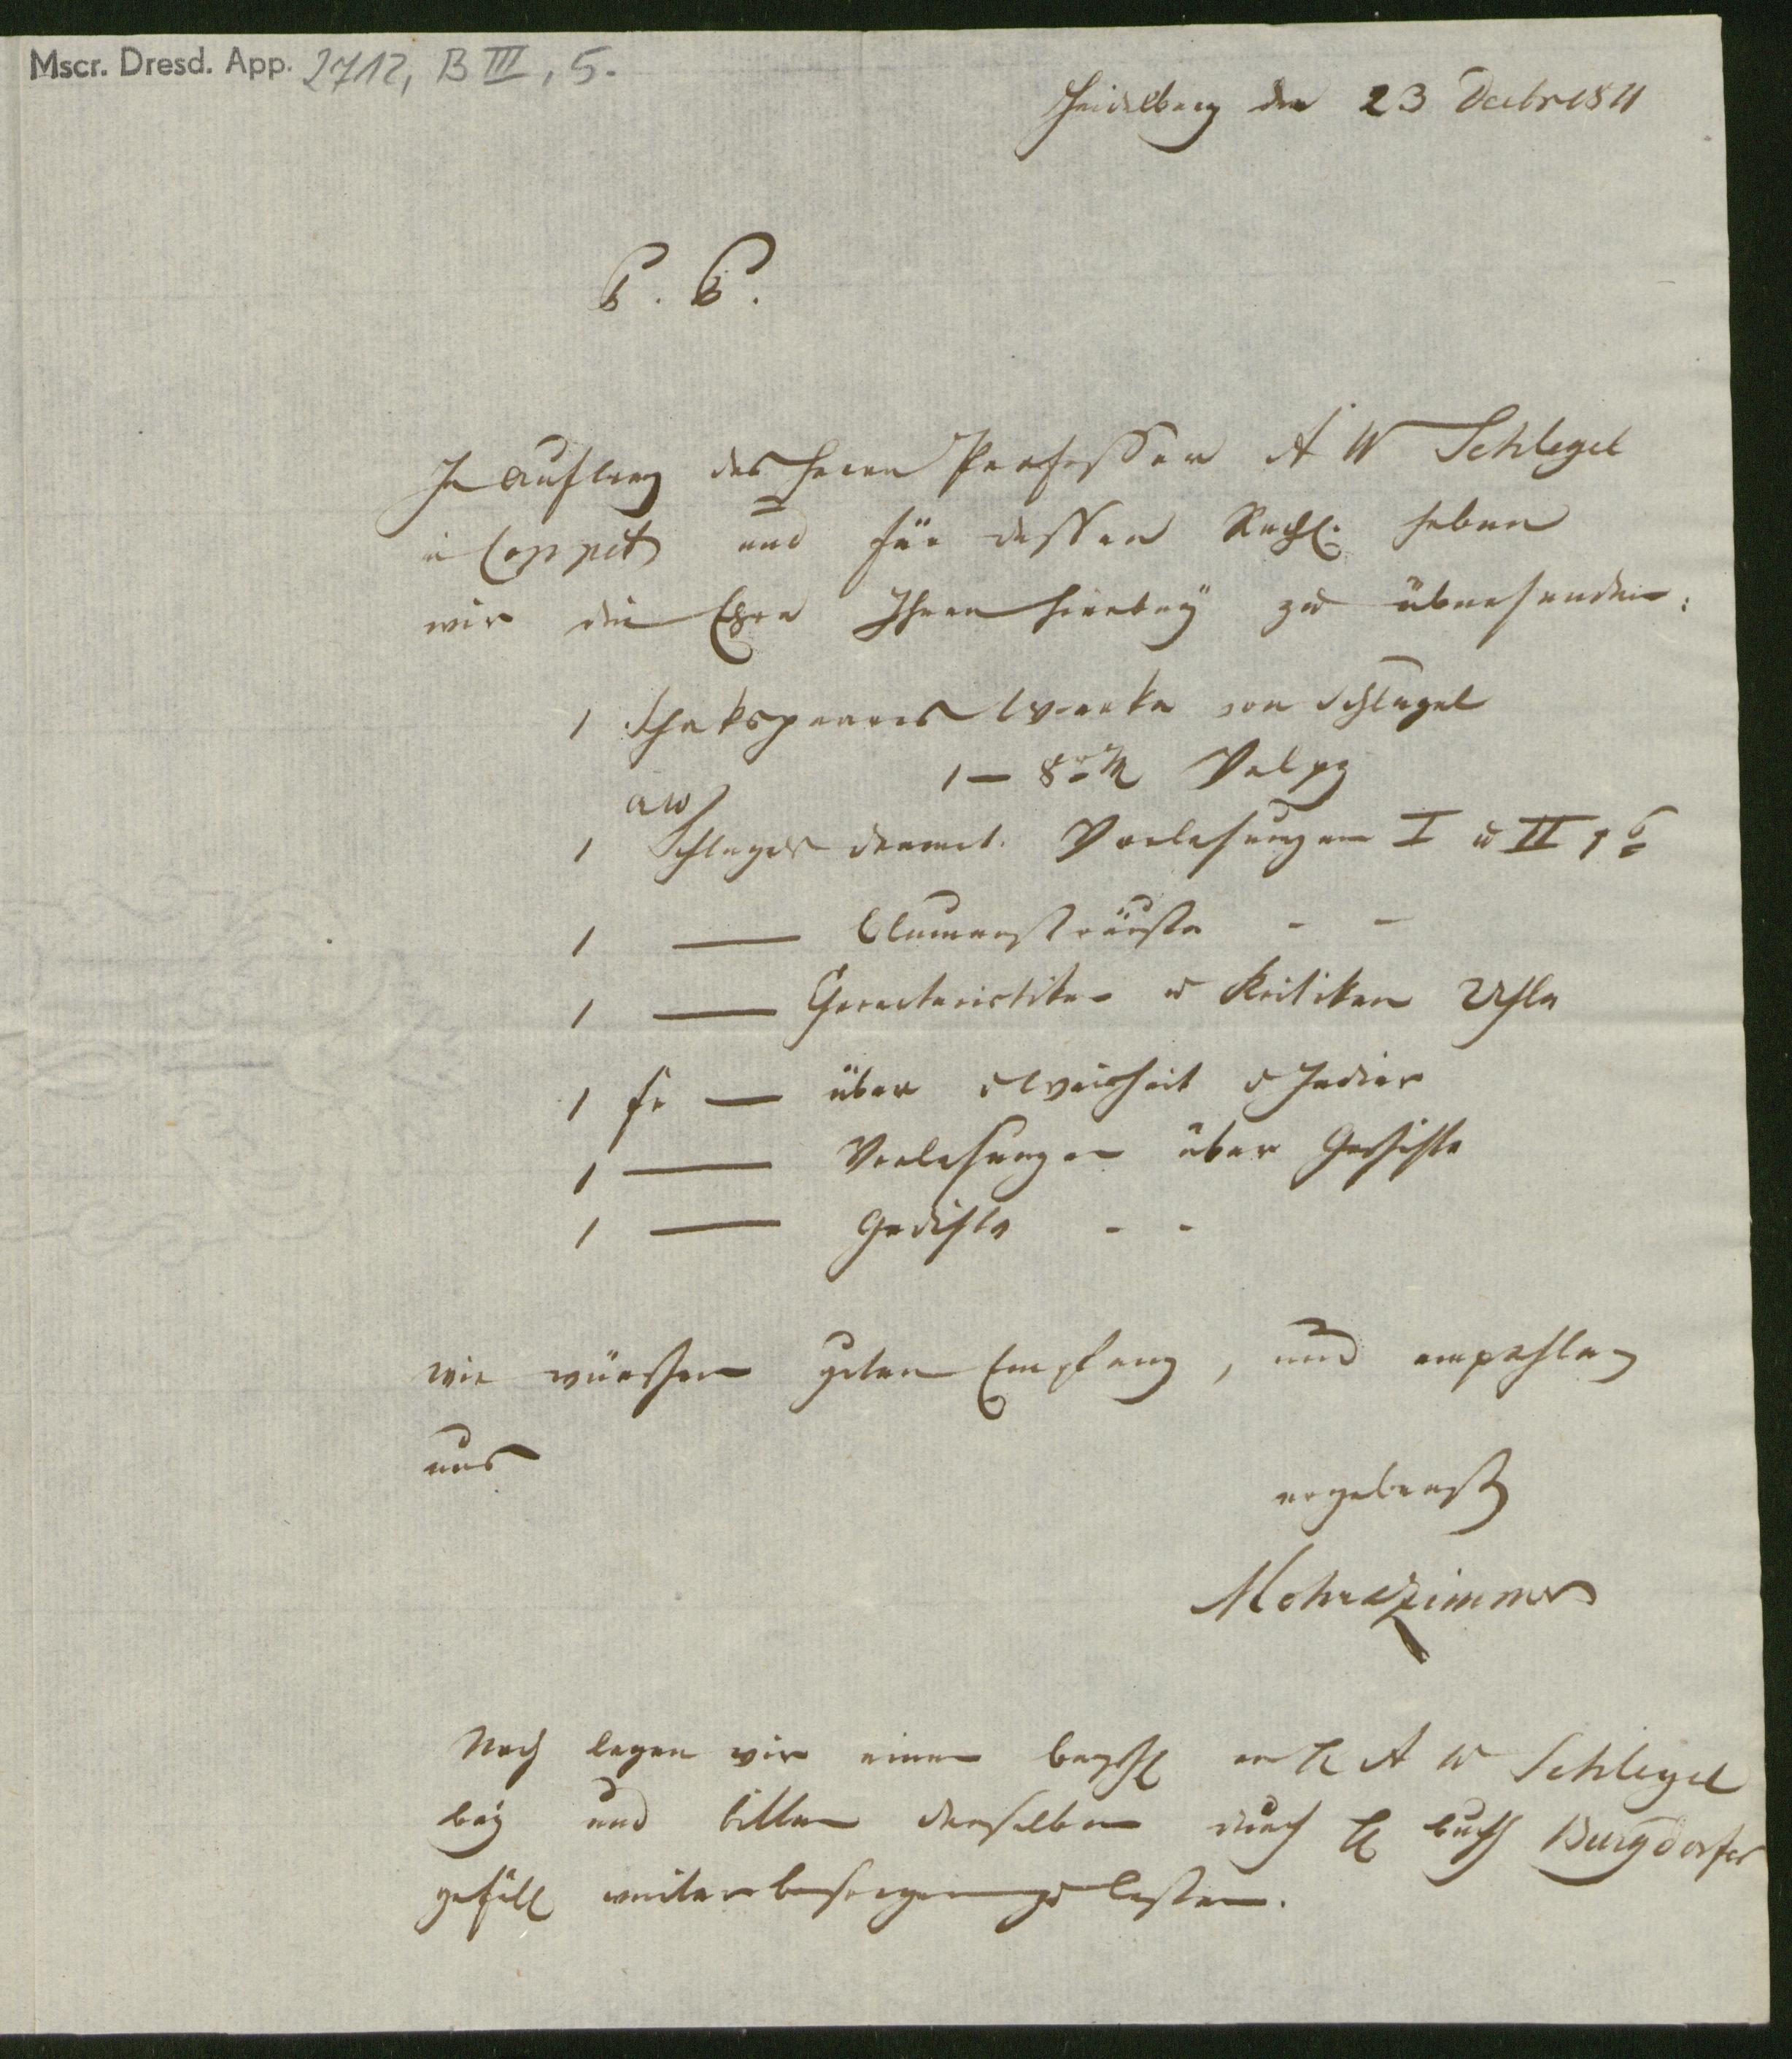 Mscr. Dresd. App. 2712, B III, 5.
Heidelberg den 23 Decbr 1811
P. P.
In Auftrag des Herrn Professor A W Schlegel
in Coppet und für dessen Rechg. haben
wir die Ehre Ihnen hierbey zu übersenden:
1 Shakspeares Werke von Schlegel
1 – 8r Velpp
AW
1 Schlegels dramat. Vorlesungen I u II 1
1 — Blumensträuße - -
1 — Characteristiken u Kritiken 2 Thle
1 Fr — über d Weisheit d Indier
1 — Vorlesungen über Geschichte
1 — Gedichte - -
wir wünschen guten Empfang, und empfehlen
uns
ergebenst
Mohr u Zimmer
Noch legen wir einen an H A W Schlegel
bey und bitten denselben durch H Buchh Burgdorfer
gefäll weiter besorgen zu lassen.